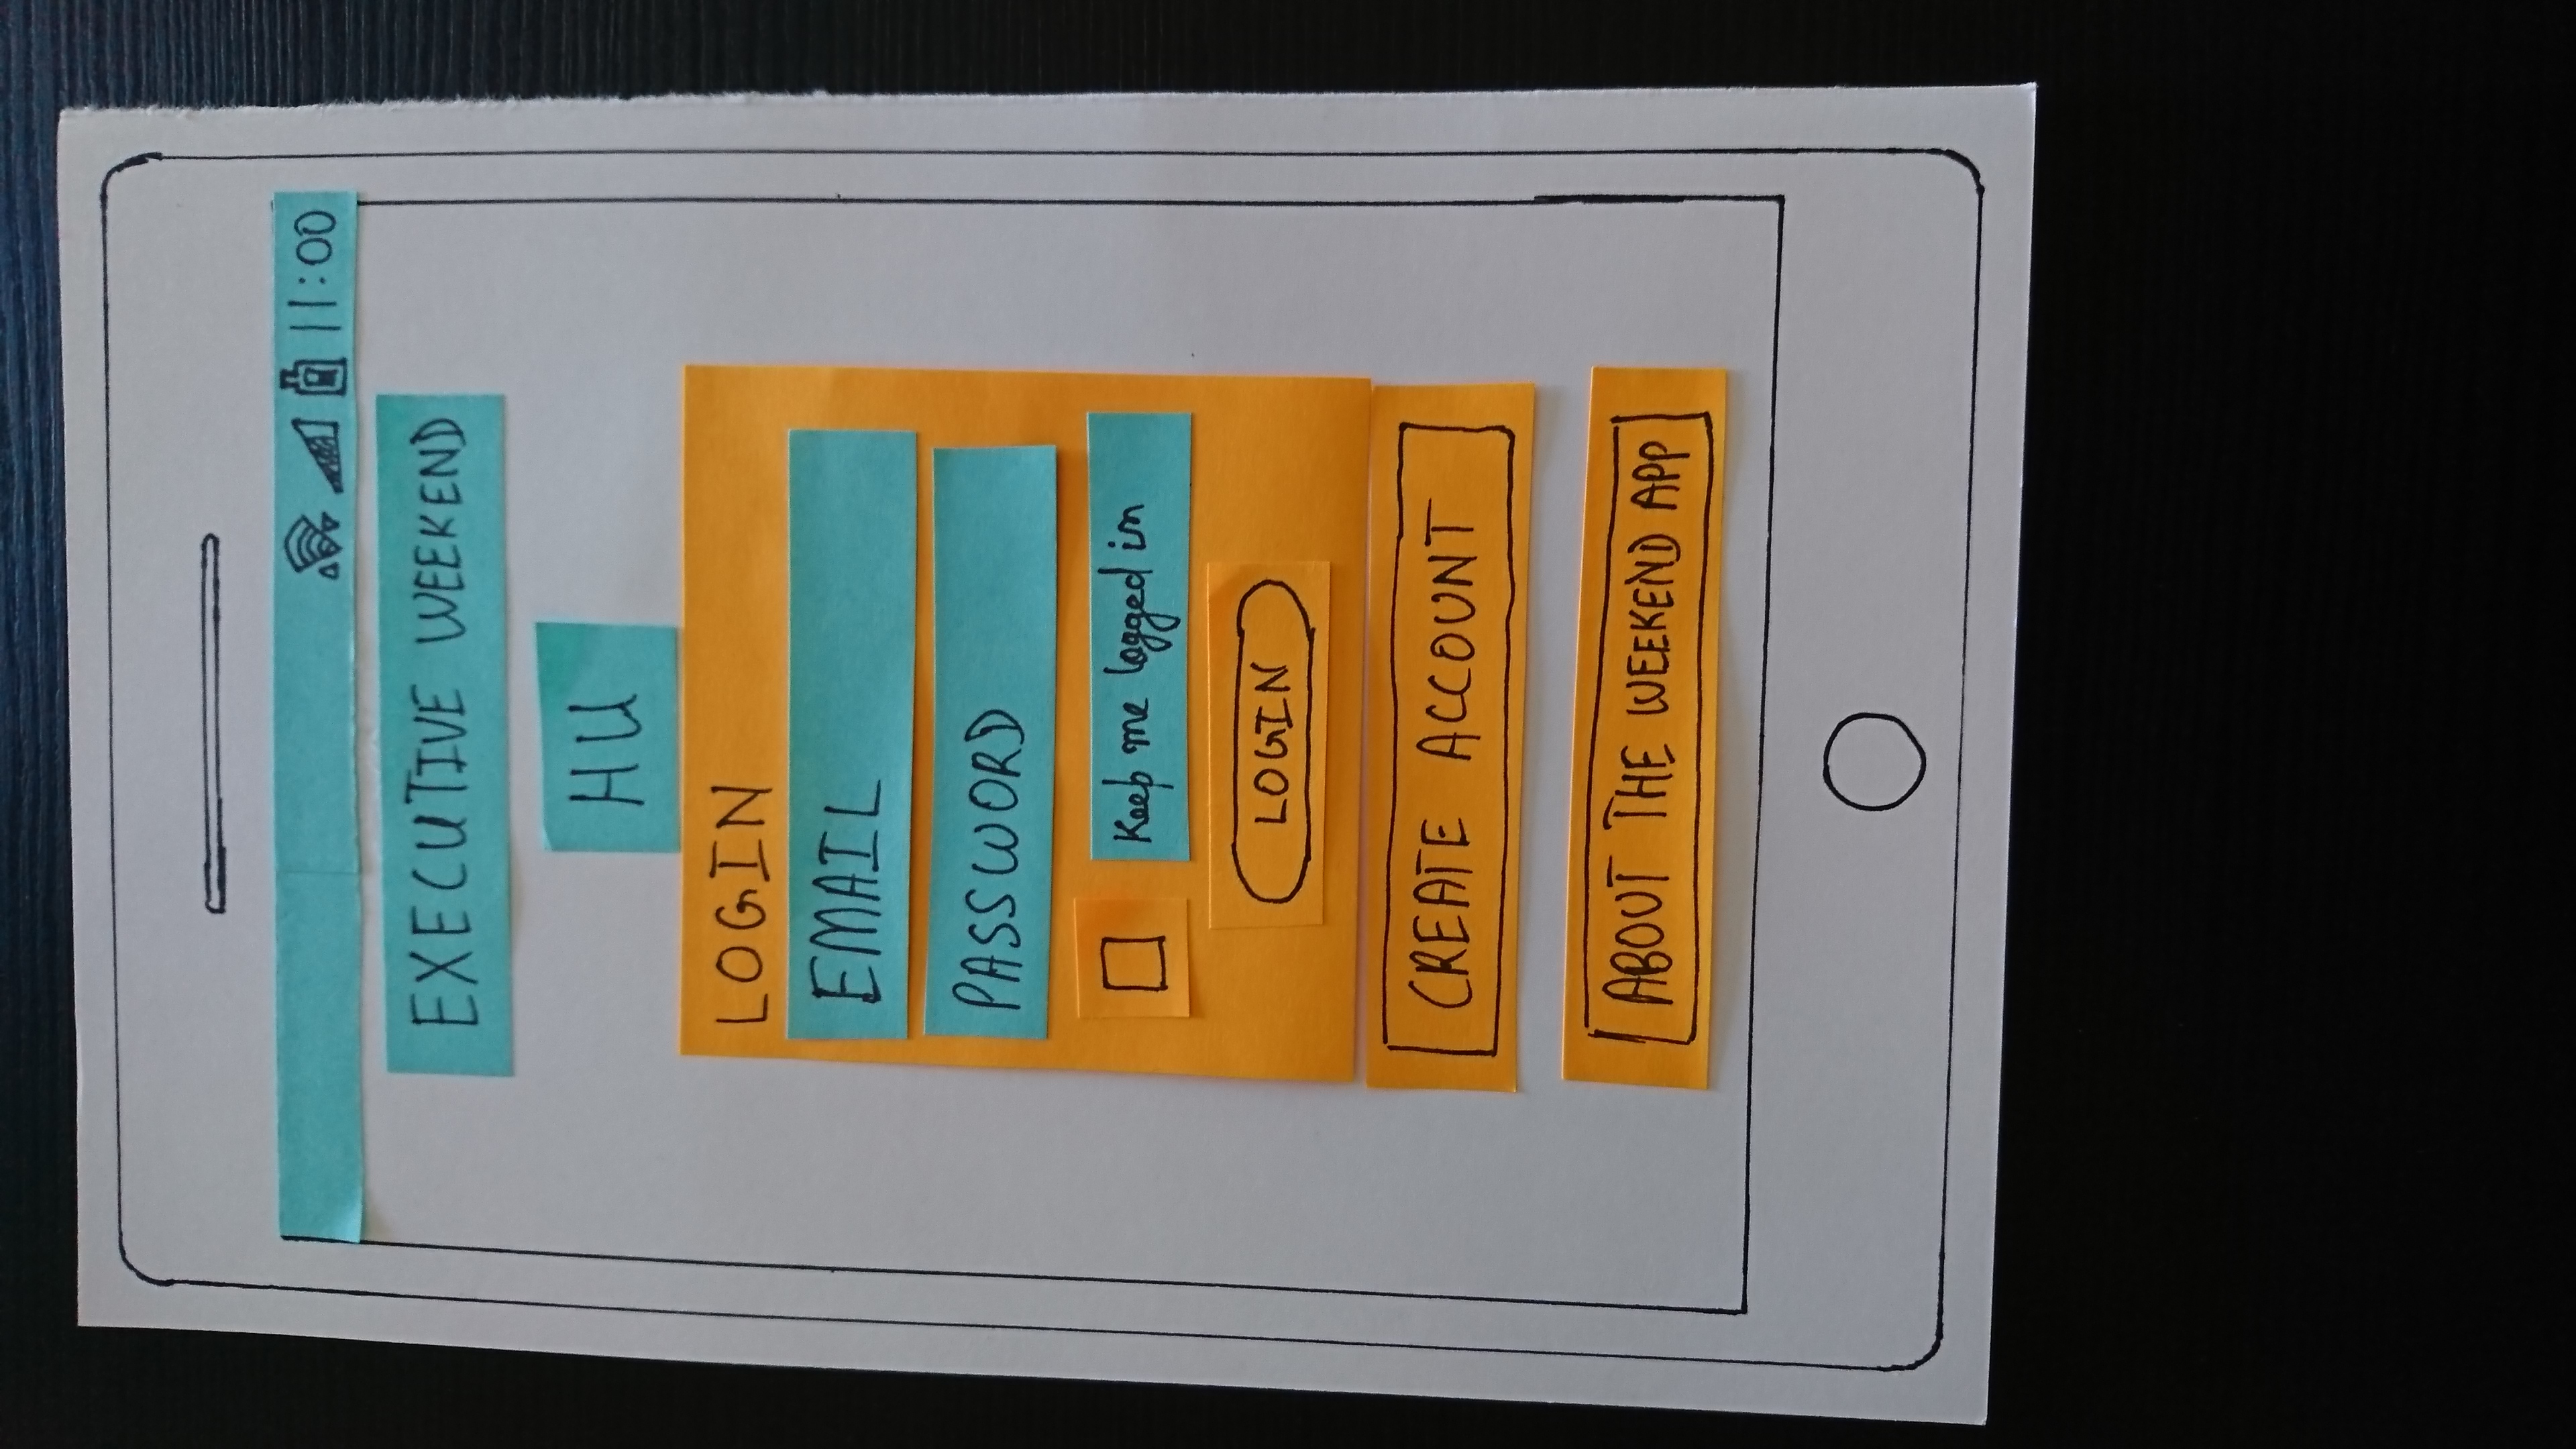 11:00
EXECUTIVE WEEKEND
HU
LOGIN
EMAIL
PASSWORD
Keep me logged in
LOGIN
CREATE ACCOUNT
ABOUT THE WEEKEND APP